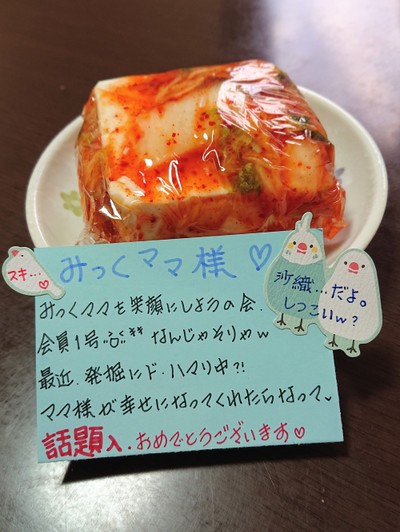 みっくママ様♡
スキ…
沙織…だよ。
しつこいw?
みっくママを笑顔にしようの会.
会員1号 なんじゃそりゃw
最近.発掘にド・ハマリ中?!
ママ様が幸せになってくれたらなって
話題入.おめでとうございます♡